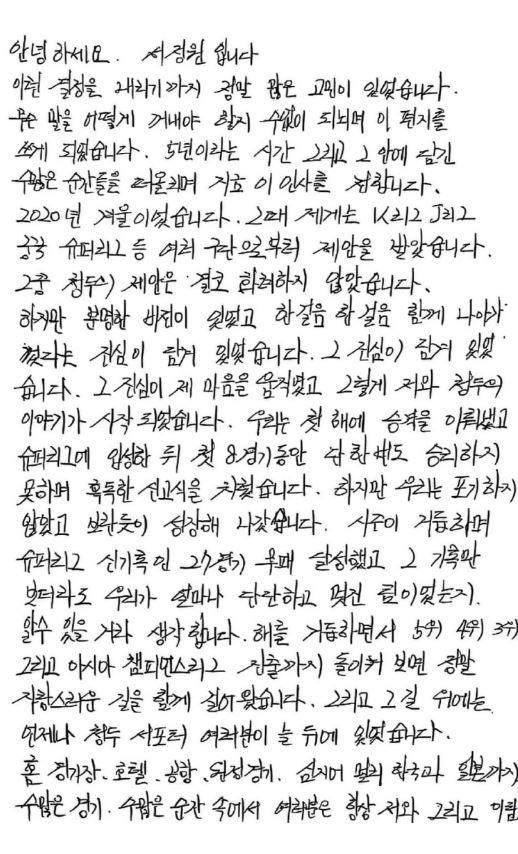 안녕하세요. 서정원 입니다
이런 결정을 내리기까지 정말 많은 고민이 있었습니다.
무슨 말을 어떻게 꺼내야 할지 수없이 되뇌며 이 편지를
쓰게 되었습니다. 5년이라는 시간 그리고 그 안에 담긴
수많은 순간들을 떠올리며 저도 이 인사를 전합니다.
2020년 겨울이었습니다. 그때 제게는 K리그 J리그
중국 슈퍼리그 등 여러 구단으로부터 제안을 받았습니다.
그중 청두의 제안은 결코 화려하지 않았습니다.
하지만 분명한 비전이 있었고 한걸음 한걸음 함께 나아가
겠다는 진심이 담겨 있었습니다. 그 진심이 담겨 있었
습니다. 그 진심이 제 마음을 움직였고 그렇게 저와 청두의
이야기가 시작 되었습니다. 우리는 첫 해에 승격을 이뤄냈고
슈퍼리그에 입성한 뒤 첫 8경기동안 단 한번도 승리하지
못하며 혹독한 신고식을 치렀습니다. 하지만 우리는 포기하지
않았고 보란듯이 성장해 나갔습니다. 시즌이 거듭하며
슈퍼리그 신기록인 27경기 무패 달성했고 그 기록만
보더라도 우리가 얼마나 단단하고 멋진 팀이었는지.
알수 있을 거라 생각합니다. 해를 거듭하면서 5위 4위 3위
그리고 아시아 챔피언스리그 진출까지 돌이켜 보면 정말
자랑스러운 길을 함께 걸어왔습니다. 그리고 그 길 위에는
언제나 청두 서포터 여러분이 늘 뒤에 있었습니다.
홈 경기장. 호텔. 공항. 원정경기. 심지어 멀리 한국과 일본까지
수많은 경기. 수많은 순간 속에서 여러분은 항상 저와 그리고 이팀